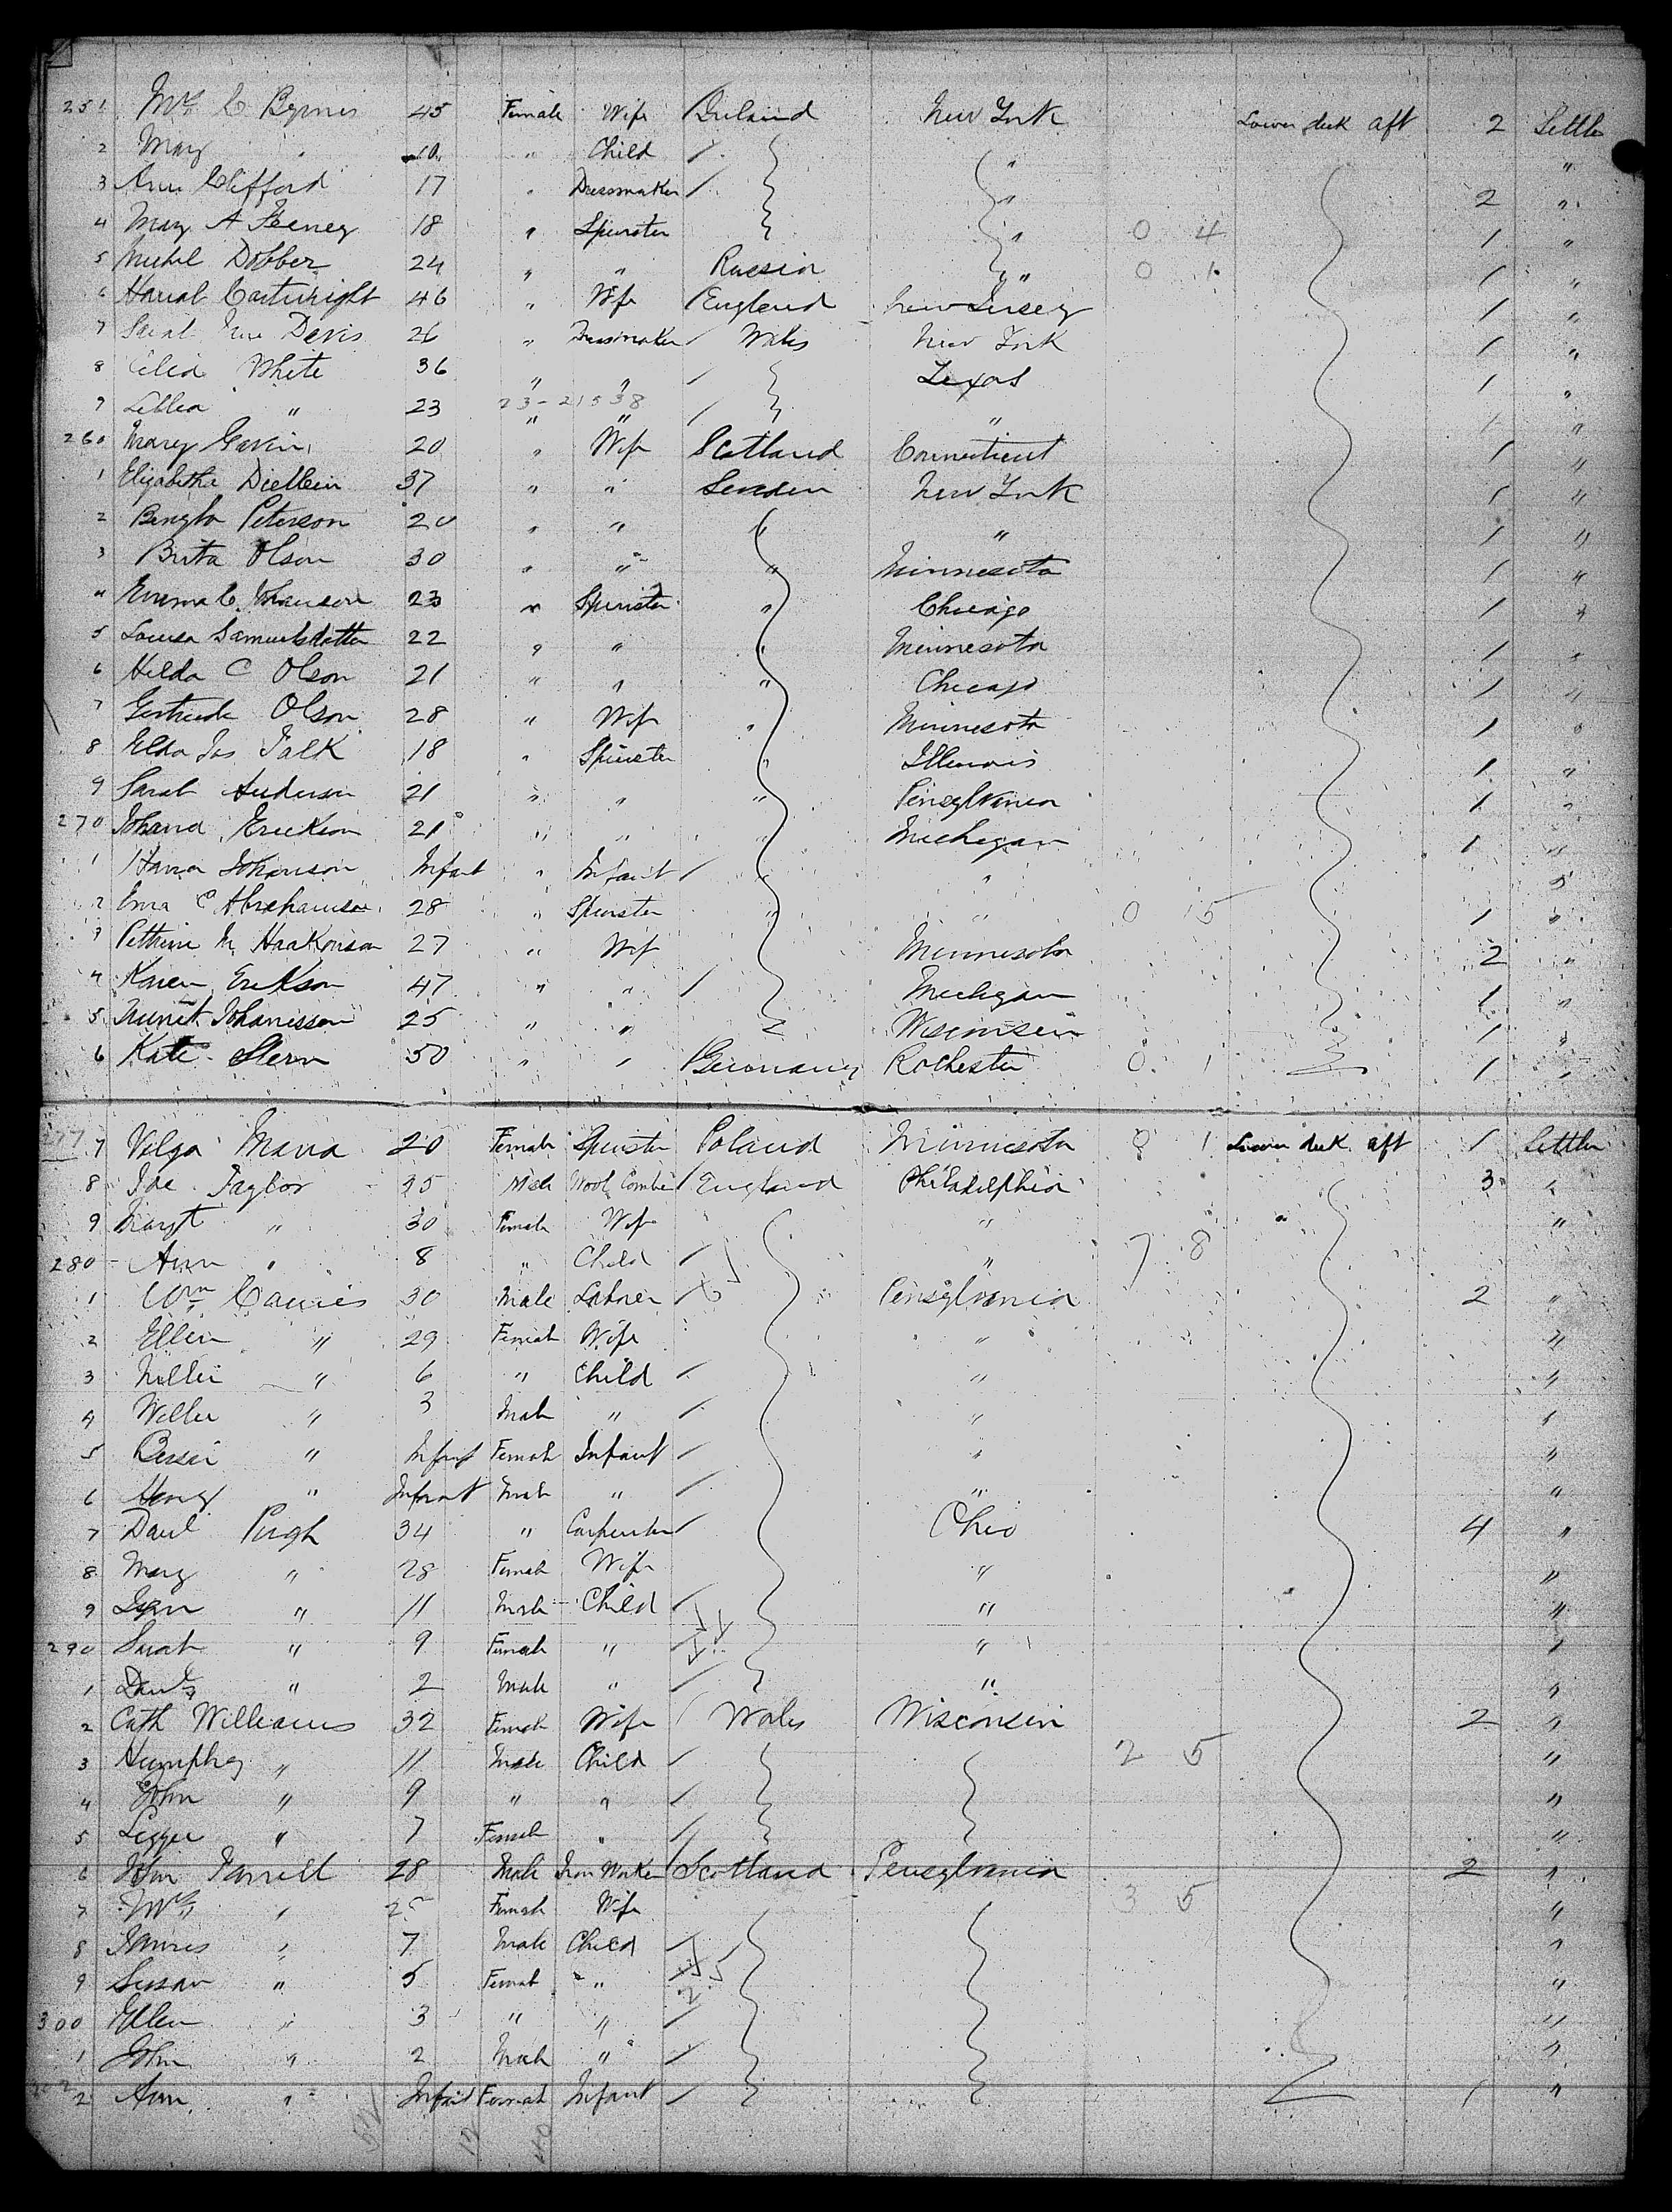 251 Mrs C Byrnes 45 Female Wife Ireland New York Lower deck aft 2 Settler
2 Mary " 10 " Child "  "
3 Ann Clifford 17 " Dressmaker " 2 "
4 Mary A Feeney 18 " Spinster " 0 4 1 "
5 Michel Dobber 24 " " Russia " 0 1 1 "
6 Cartwright 46 " Wife England New Jersey 1 "
7 Sarah Ann Devis 26 " Dressmaker Wales New York 1 "
8 Celia White 36 " " Texas 1 "
9 " 23 23-21538 " " " 1 "
260 Mary Gavin 20 " Wife Scotland Connecticut 1 "
1 Elizabetha 37 " " Sweden New York 1 "
2 Bengta Peterson 20 " " " " 1 "
3 Brita Olson 30 " " " Minnesota 1 "
4 Emma C. Johanson 23 " Spinster " Chicago 1 "
5 Louisa Samuelsdatter 22 " " " Minnesota 1 "
6 Hilda C Olson 21 " " " Chicago 1 "
7 Gertrude Olson 28 " Wife " Minnesota 1 "
8 Falk 18 " Spinster " Illinois 1 "
9 Sarah Anderson 21 " " " Pensylvania 1 "
270 Johana Erickson 21 " " " Michegan 1 "
1 Hanna Johanson Infant " Infant " " "
2 Ema C Abrahamson 28 " Spinster " " 0 15 1 "
3 Pettrine M Haakonson 27 " Wif Minnesota 2 "
4 Karen Erikson 47 " " Michigan 1 "
5 Johanisson 25 " " Wisconsin 1 "
6 Kate Stern 50 " " Germany Rochester 0 1 1 "
277 7 Velga Maria 20 Female Spinster Poland Minnesota 0 1 Lower deck aft 1 Settler
8 Joe Taylor 35 Male Wool Comber England Philadelphia 3 "
9 Margt " 30 Female Wife " " "
280 Ann " 8 " Child " 7 8
1 Wm Cairnes 30 Male Labourer Pensylvania 2 "
2 Ellen " 29 Female Wife " "
3 Nellie " 6 " Child " "
4 Willie " 3 Male " " "
5 Bessie " Infant Female Infant " "
6 Henry " Infant Male " " "
7 Davd Pugh 34 " Carpenter Ohio 4 "
8 Mary " 28 Female Wife " "
9 " 11 Male Child " "
290 Sarah " 9 Female " " "
1 David " 2 Male " " "
2 Cath Williams 32 Female Wife Wales Wisconsin 2 "
3 Humphrey " 11 Male Child 2 5 "
4 John " 9 " " "
5 Lizzie " 7 Female " "
6 John Farrell 28 Male Iron Worker Scotland Pensylvania 2 "
7 Mrs " 25 Female Wife 3 5 "
8 James " 7 Male Child "
9 Susan " 5 Female " "
300 Ellen " 3 " " "
1 John " 2 Male " "
302 2 Ann " Infant Female Infant 1 "